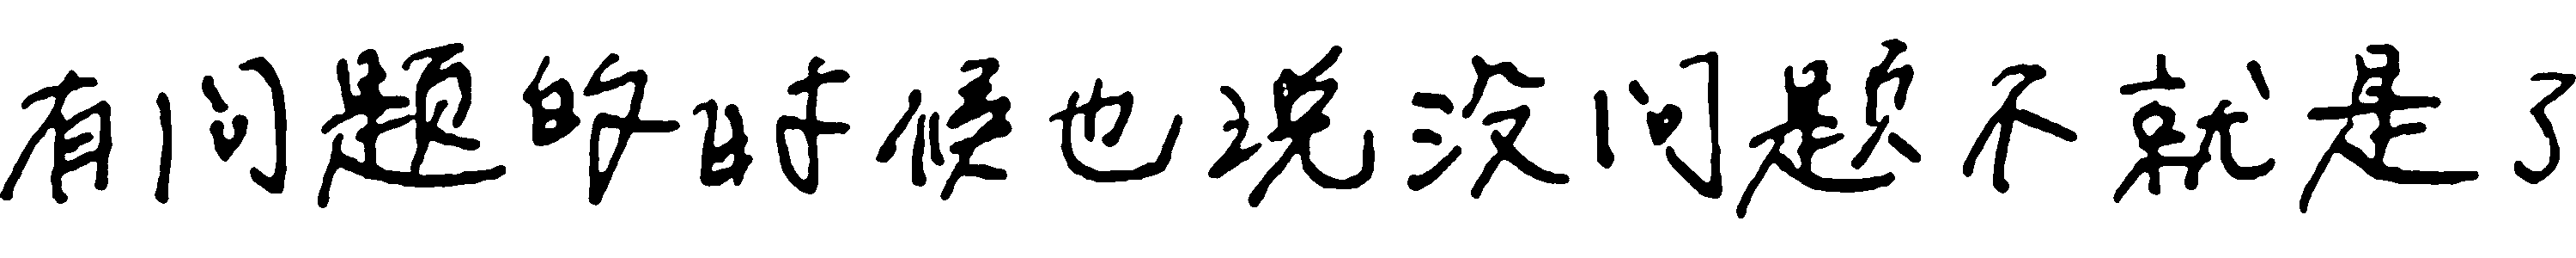 有问题的时候也说没问题不就是了